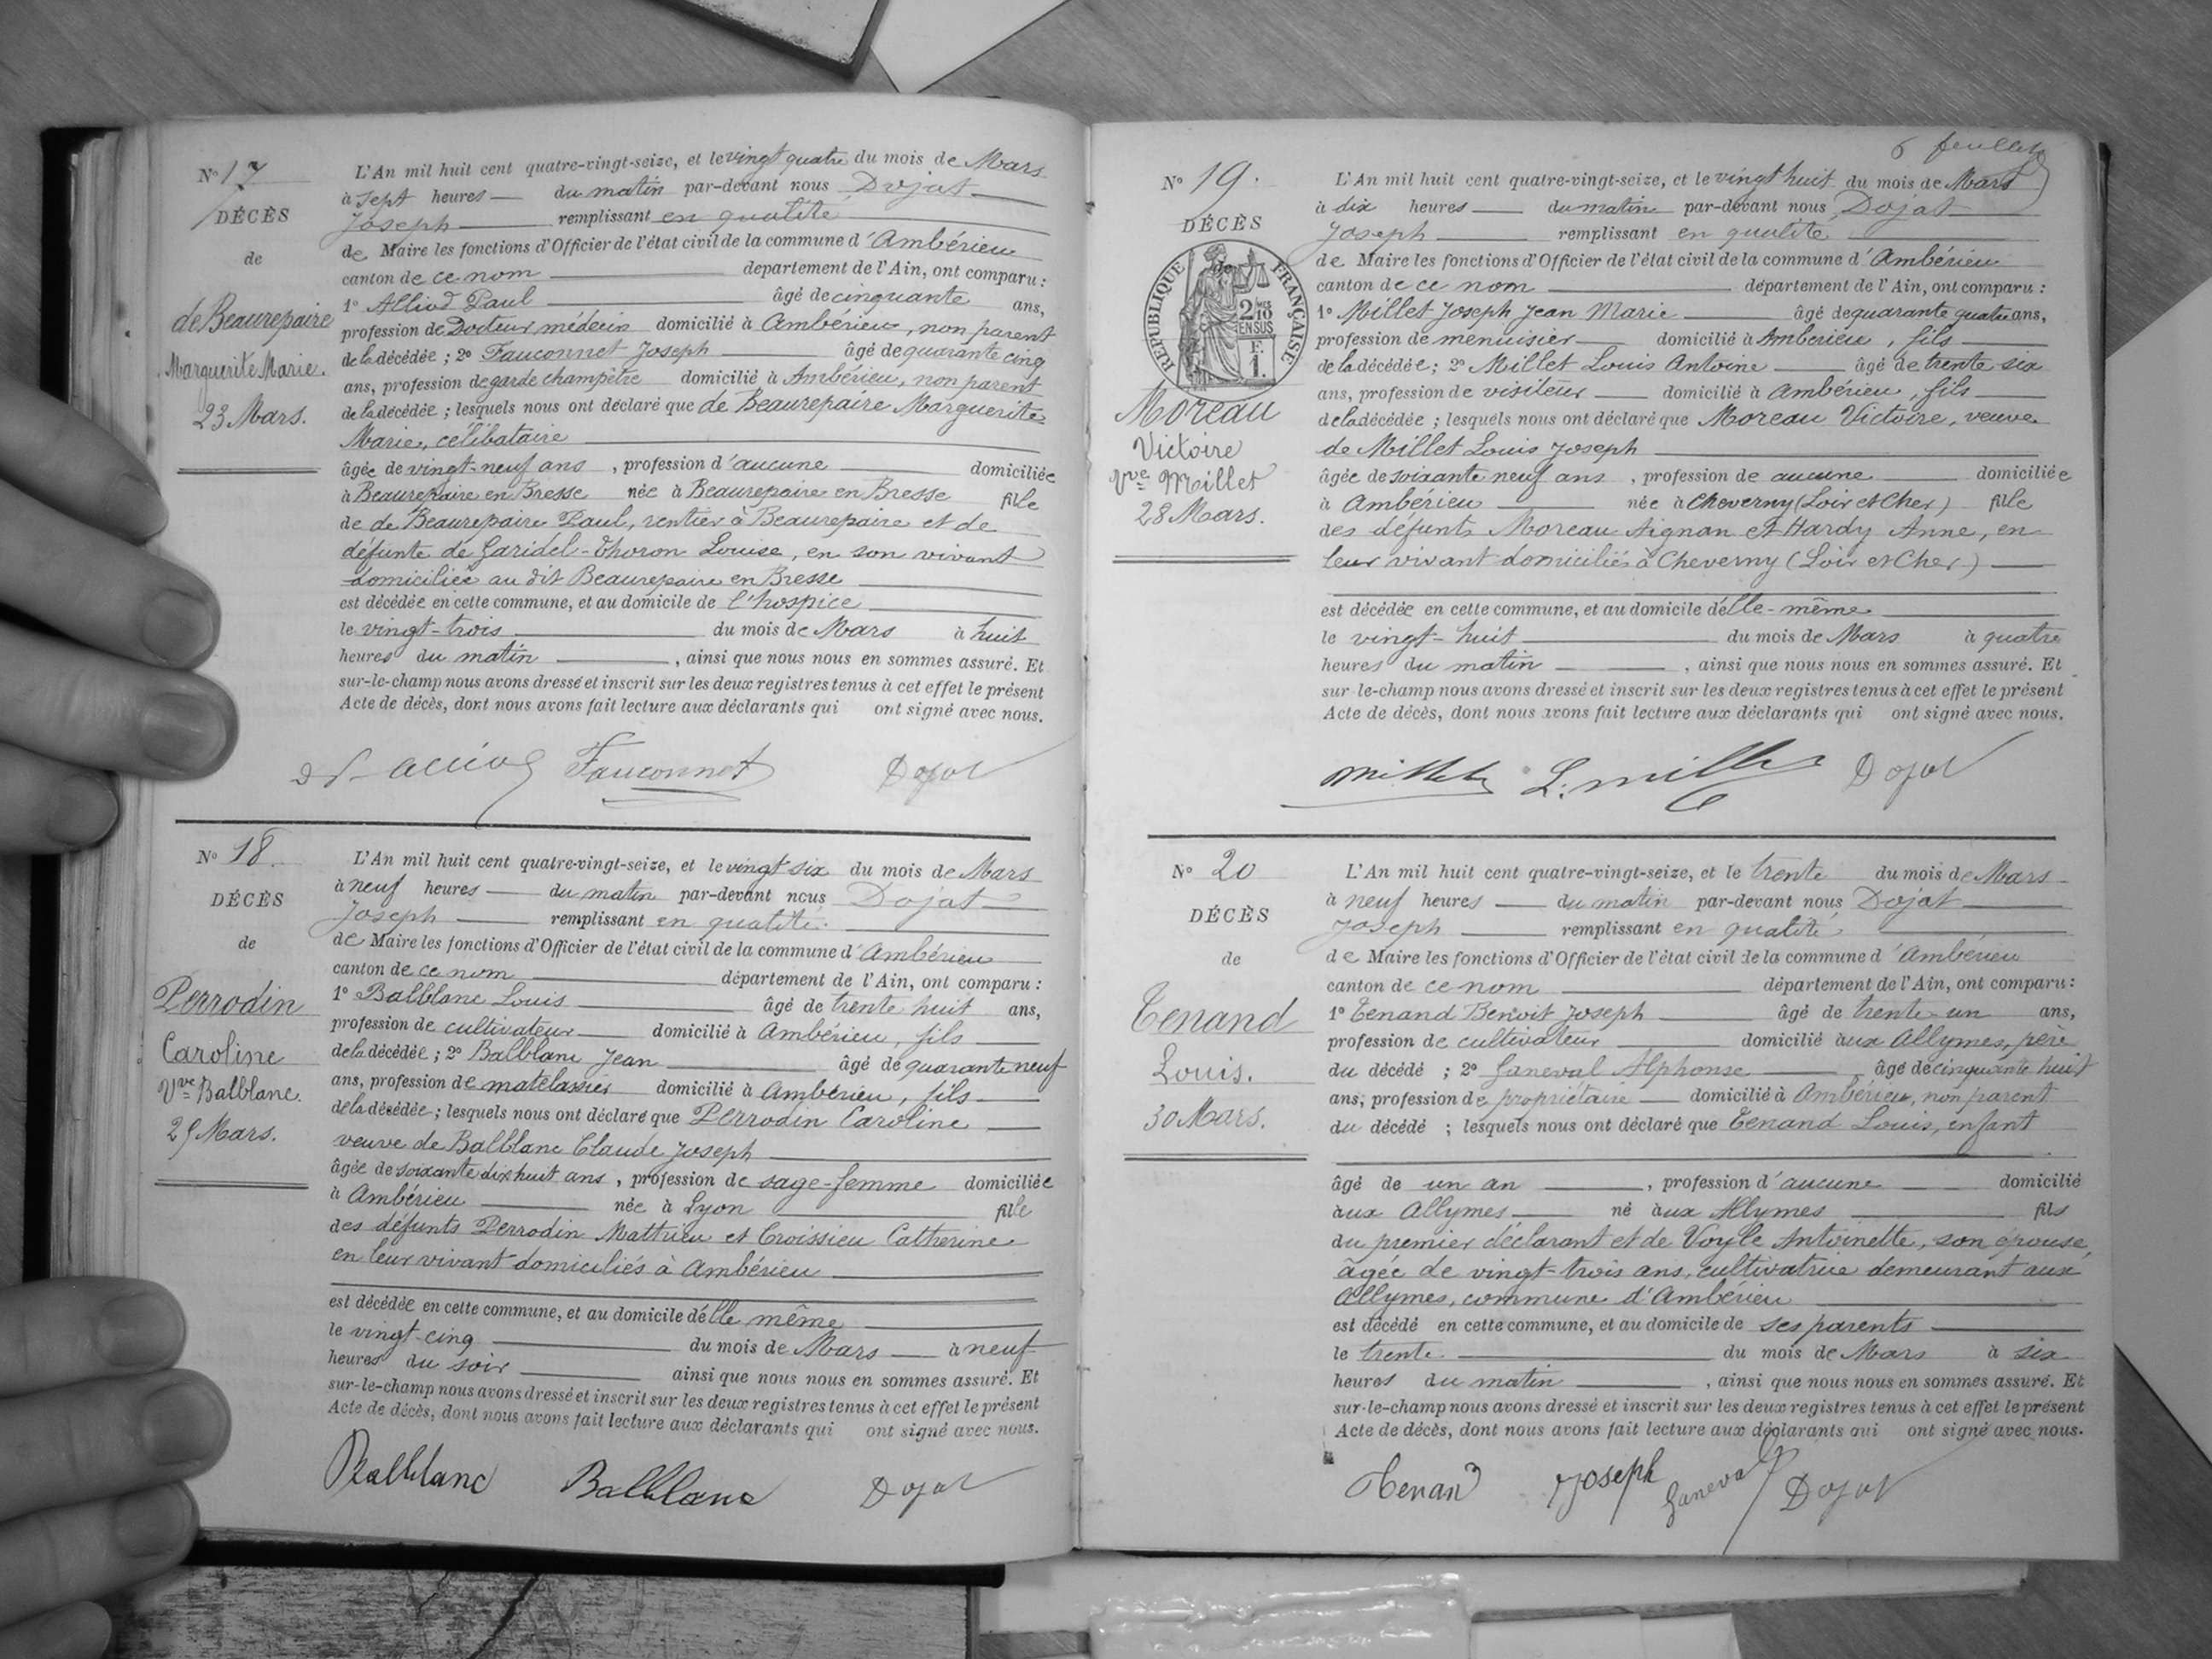 N° 17
DÉCÈS
de
de Beaurepaire
Marguerite Marie.
23 Mars.
L'An mil huit cent quatre-vingt-seize, et le vingt quatre du mois de Mars
à sept heures du matin par-devant nous Dojat
Joseph remplissant en qualité
de Maire les fonctions d'Officier de l'état civil de la commune d'Ambérieu
canton de ce nom departement de l'Ain, ont comparu :
1° Alliod Paul âgé de cinquante ans,
profession de Docteur médecin domicilié à Ambérieu, non parent
de la décédée ; 2° Fauconnet Joseph âgé de quarante cinq
ans, profession de garde champêtre domicilié à Ambérieu, non parent
de la décédée ; lesquels nous ont déclaré que de Beaurepaire Marguerite
Marie, célibataire
âgée de vingt-neuf ans, profession d'aucune domiciliée
à Beaurepaire en Bresse née à Beaurepaire en Bresse fille
de de Beaurepaire Paul, rentier à Beaurepaire et de
défunte de Garidel-Thoron Louise, en son vivant
domiciliée au dit Beaurepaire en Bresse
est décédée en cette commune, et au domicile de l'hospice
le vingt-trois du mois de Mars à huit
heures du matin , ainsi que nous nous en sommes assuré. Et
sur-le-champ nous avons dressé et inscrit sur les deux registres tenus à cet effet le présent
Acte de décès, dont nous avons fait lecture aux déclarants qui ont signé avec nous.
Fauconnet Dojat
N° 18.
DÉCÈS
de
Perrodin
Caroline
Vve Balblanc.
25 Mars.
L'An mil huit cent quatre-vingt-seize, et le vingt six du mois de Mars
à neuf heures du matin par-devant nous Dojat
Joseph remplissant en qualité
de Maire les fonctions d'Officier de l'état civil de la commune d'Ambérieu
canton de ce nom département de l'Ain, ont comparu :
1° Balblanc Louis âgé de trente huit ans,
profession de cultivateur domicilié à Ambérieu, fils
de la décédée ; 2° Balblanc Jean âgé de quarante neuf
ans, profession de matelassier domicilié à Ambérieu, fils
de la décédée ; lesquels nous ont déclaré que Perrodin Caroline
veuve de Balblanc Claude Joseph
âgée de soixante dix huit ans, profession de sage-femme domiciliée
à Ambérieu née à Lyon fille
des défunts Perrodin Matthieu et Croissieu Catherine
en leur vivant domiciliés à Ambérieu
est décédée en cette commune, et au domicile d'elle même
le vingt-cinq du mois de Mars à neuf
heures du soir ainsi que nous nous en sommes assuré. Et
sur-le-champ nous avons dressé et inscrit sur les deux registres tenus à cet effet le présent
Acte de décès, dont nous avons fait lecture aux déclarants qui ont signé avec nous.
Balblanc Balblanc Dojat
6 feuillet
N° 19.
DÉCÈS
de
RÉPUBLIQUE FRANÇAISE
2/10 EN SUS
F. 1.
Moreau
Victoire
Vve Millet
28 Mars.
L'An mil huit cent quatre-vingt-seize, et le vingt huit du mois de Mars
à dix heures du matin par-devant nous Dojat
Joseph remplissant en qualité
de Maire les fonctions d'Officier de l'état civil de la commune d'Ambérieu
canton de ce nom département de l'Ain, ont comparu :
1° Millet Joseph Jean Marie âgé de quarante quatre ans,
profession de menuisier domicilié à Ambérieu, fils
de la décédée ; 2° Millet Louis Antoine âgé de trente six
ans, profession de visiteur domicilié à Ambérieu, fils
de la décédée ; lesquels nous ont déclaré que Moreau Victoire, veuve
de Millet Louis Joseph
âgée de soixante neuf ans , profession de aucune domiciliée
à Ambérieu née à Cheverny (Loir et Cher) fille
des défunts Moreau Aignan et Hardy Anne, en
leur vivant domiciliés à Cheverny (Loir et Cher)
est décédée en cette commune, et au domicile d'elle-même
le vingt-huit du mois de Mars à quatre
heures du matin , ainsi que nous nous en sommes assuré. Et
sur-le-champ nous avons dressé et inscrit sur les deux registres tenus à cet effet le présent
Acte de décès, dont nous avons fait lecture aux déclarants qui ont signé avec nous.
Millet L. Millet Dojat
N° 20
DÉCÈS
de
Tenand
Louis.
30 Mars.
L'An mil huit cent quatre-vingt-seize, et le trente du mois de Mars
à neuf heures du matin par-devant nous Dojat
Joseph remplissant en qualité
de Maire les fonctions d'Officier de l'état civil de la commune d'Ambérieu
canton de ce nom département de l'Ain, ont comparu :
1° Tenand Benoit Joseph âgé de trente-un ans,
profession de cultivateur domicilié aux Allymes, père
du décédé ; 2° Ganeval Alphonse âgé de cinquante huit
ans, profession de propriétaire domicilié à Ambérieu, non parent
du décédé ; lesquels nous ont déclaré que Tenand Louis, enfant
âgé de un an , profession d'aucune domicilié
aux Allymes né aux Allymes fils
du premier déclarant et de Voyle Antoinette, son épouse,
âgée de vingt-trois ans, cultivatrice demeurant aux
Allymes, commune d'Ambérieu
est décédé en cette commune, et au domicile de ses parents
le trente du mois de Mars à six
heures du matin , ainsi que nous nous en sommes assuré. Et
sur-le-champ nous avons dressé et inscrit sur les deux registres tenus à cet effet le présent
Acte de décès, dont nous avons fait lecture aux déclarants qui ont signé avec nous.
Tenand Joseph Ganeval Dojat